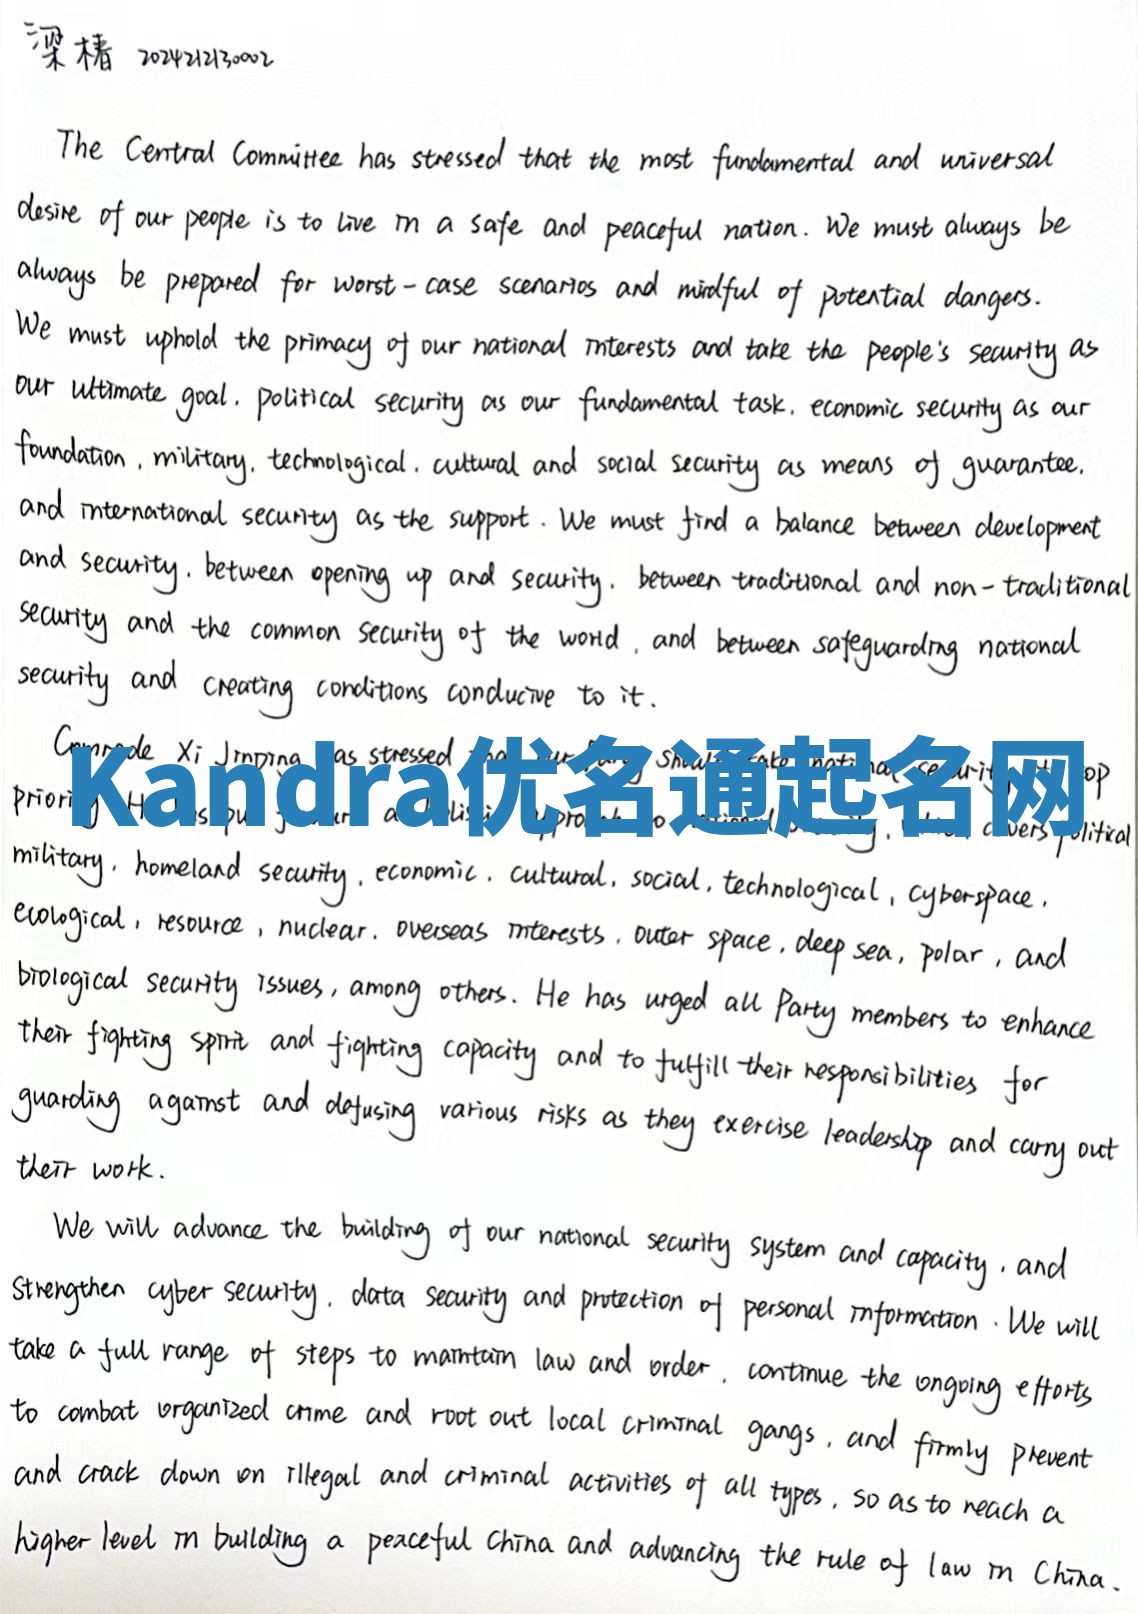 梁椿 2024212130002
The Central Committee has stressed that the most fundamental and universal
desire of our people is to live in a safe and peaceful nation. We must always be
always be prepared for worst-case scenarios and mindful of potential dangers.
We must uphold the primacy of our national interests and take the people's security as
our ultimate goal, political security as our fundamental task, economic security as our
foundation, military, technological, cultural and social security as means of guarantee,
and international security as the support. We must find a balance between development
and security, between opening up and security, between traditional and non-traditional
security and the common security of the world, and between safeguarding national
security and creating conditions conducive to it.
Comrade Xi Jinping has stressed national security top
Kandra优名通起名网
priority covers political
military, homeland security, economic, cultural, social, technological, cyberspace,
ecological, resource, nuclear, overseas interests, outer space, deep sea, polar, and
biological security issues, among others. He has urged all Party members to enhance
their fighting spirit and fighting capacity and to fulfill their responsibilities for
guarding against and defusing various risks as they exercise leadership and carry out
their work.
We will advance the building of our national security system and capacity, and
strengthen cyber security, data security and protection of personal information. We will
take a full range of steps to maintain law and order, continue the ongoing efforts
to combat organized crime and root out local criminal gangs, and firmly prevent
and crack down on illegal and criminal activities of all types, so as to reach a
higher level in building a peaceful China and advancing the rule of law in China.